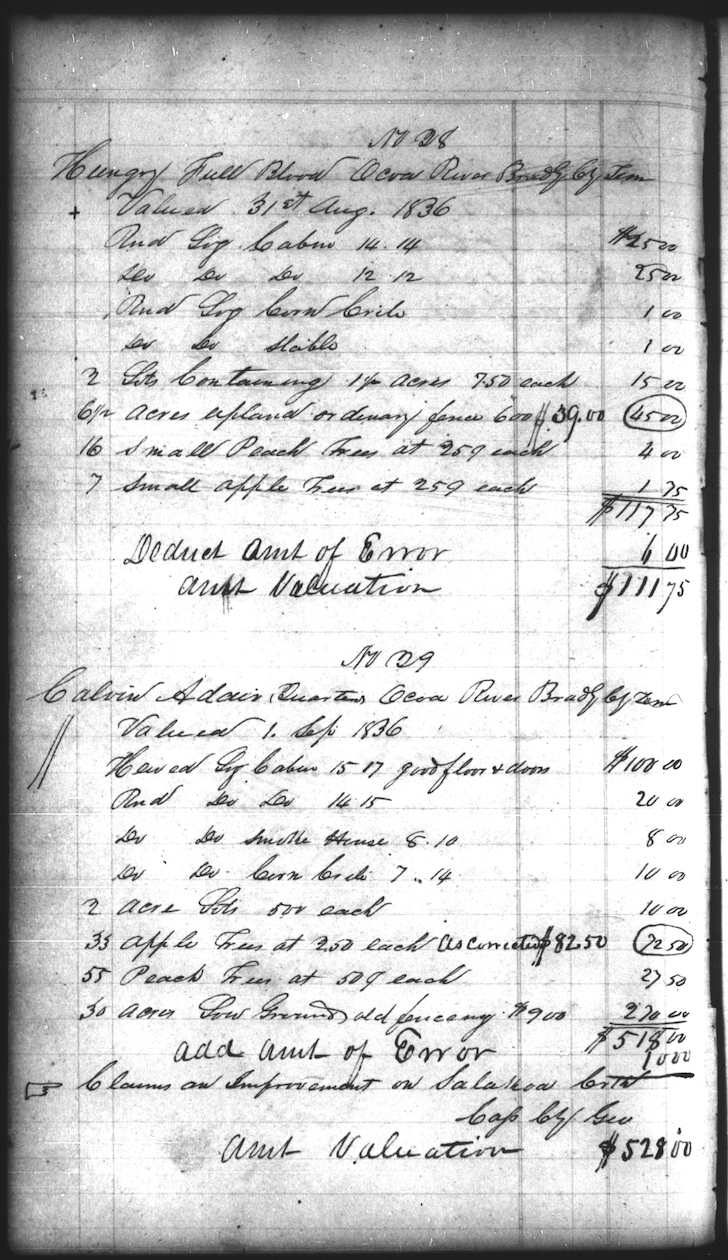 No 28
Hungry Full Blood Ocoa River Bradly Cty Ten
+ Valued 31st Aug. 1836
Rnd Log Cabin 14.14 $25 00
Do Do Do 12.12 25 00
Rnd Log Corn Crib 1 00
Do Do Stable 1 00
2 Lots Containing 1 1/2 acres 7.50 each 15 00
6 1/2 acres upland ordinary fence 6 00 $39.00 45 00
16 small Peach Trees at 25¢ each 4 00
7 small apple Trees at 25¢ each 1 75
$117 75
Deduct amt of Error 6 00
amt Valuation $111 75
No 29
Calvin Adair, Quarteron Ocoa River Bradly Cty Ten
Valued 1. Sep 1836
Hewed Log Cabin 15 17 good floor & doors $100 00
Rnd Do Do 14 15 20 00
Do Do smoke House 8.10 8 00
Do Do Corn Crib 7..14 10 00
2 acre Lots 500 each 10 00
33 apple Trees at 2.50 each as corrected $82.50 72 50
55 Peach Trees at 50¢ each 27 50
30 acres Low Ground old fenceing $9 00 270 00
$518 00
add amt of Error 10 00
Claims an Improvement on Salakoa Crk
Cass Cty Geo
amt Valuation $528.00